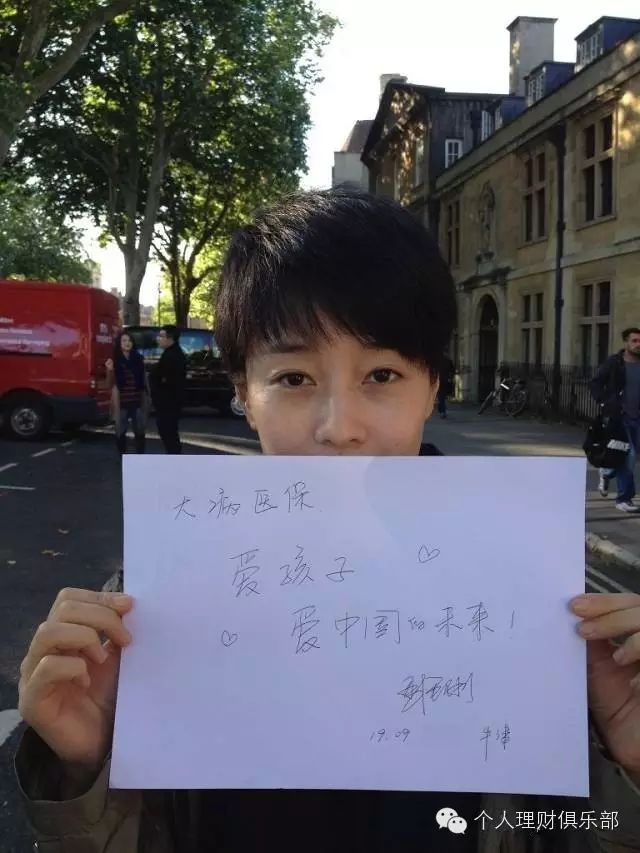 大病医保
爱孩子 ♡
♡ 爱中国的未来!
19.09 牛津
个人理财俱乐部